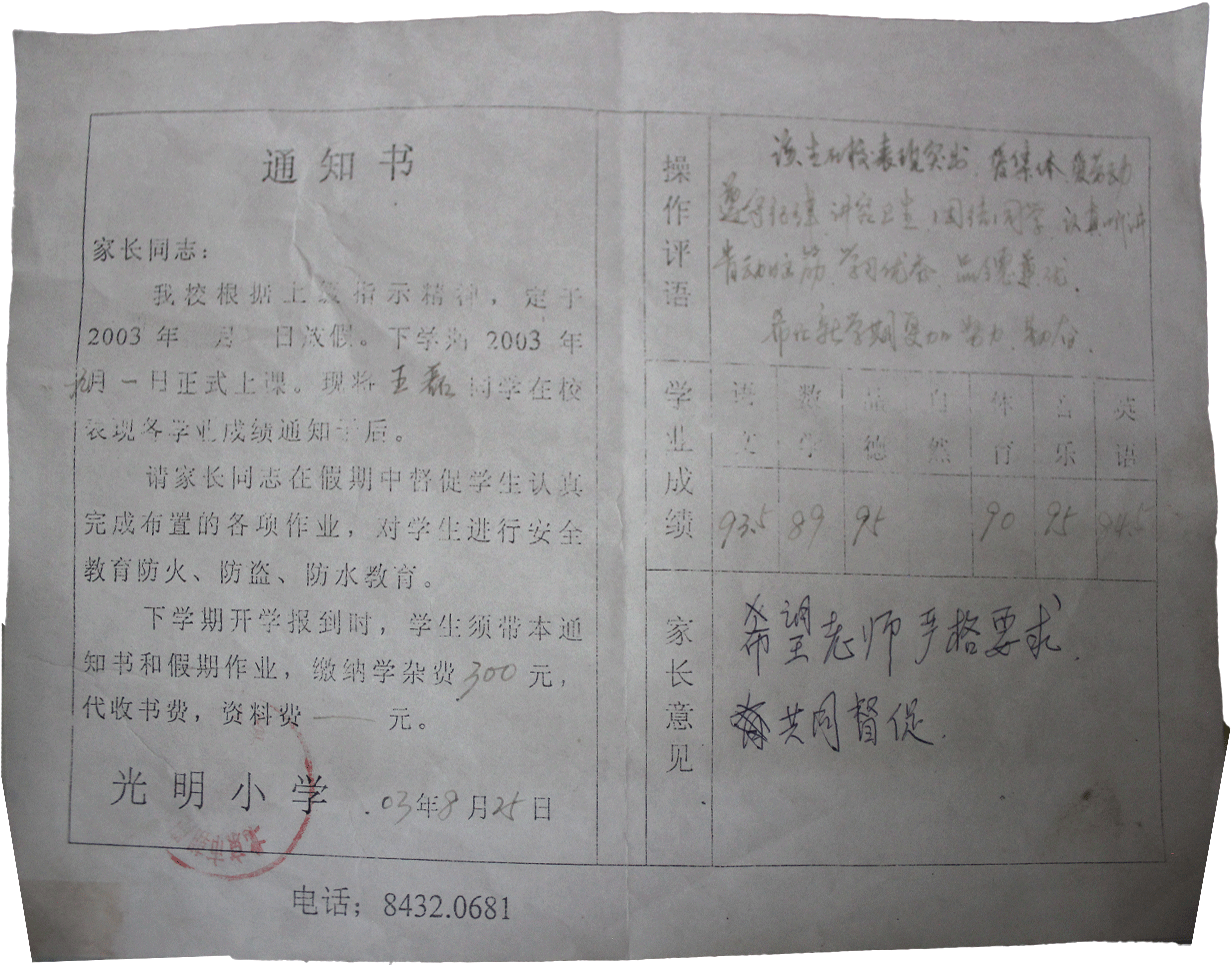 通知书
家长同志：
我校根据上级指示精神，定于
2003 年 月 日放假。下学期 2003 年
九月一日正式上课。现将王磊同学在校
表现各学业成绩通知于后。
请家长同志在假期中督促学生认真
完成布置的各项作业，对学生进行安全
教育防火、防盗、防水教育。
下学期开学报到时，学生须带本通
知书和假期作业，缴纳学杂费300元，
代收书费，资料费——元。
光明小学 03年8月25日
电话；8432.0681
操作评语
该生在校表现突出，爱集体，爱劳动
遵守纪律，讲究卫生，团结同学，认真听讲
肯动脑筋，学习优秀，品德兼优。
希在新学期更加努力，勤奋。
学业成绩
语文 数学 品德 自然 体育 音乐 英语
93.5 89 95 90 95 94.5
家长意见
希望老师严格要求，
共同督促。